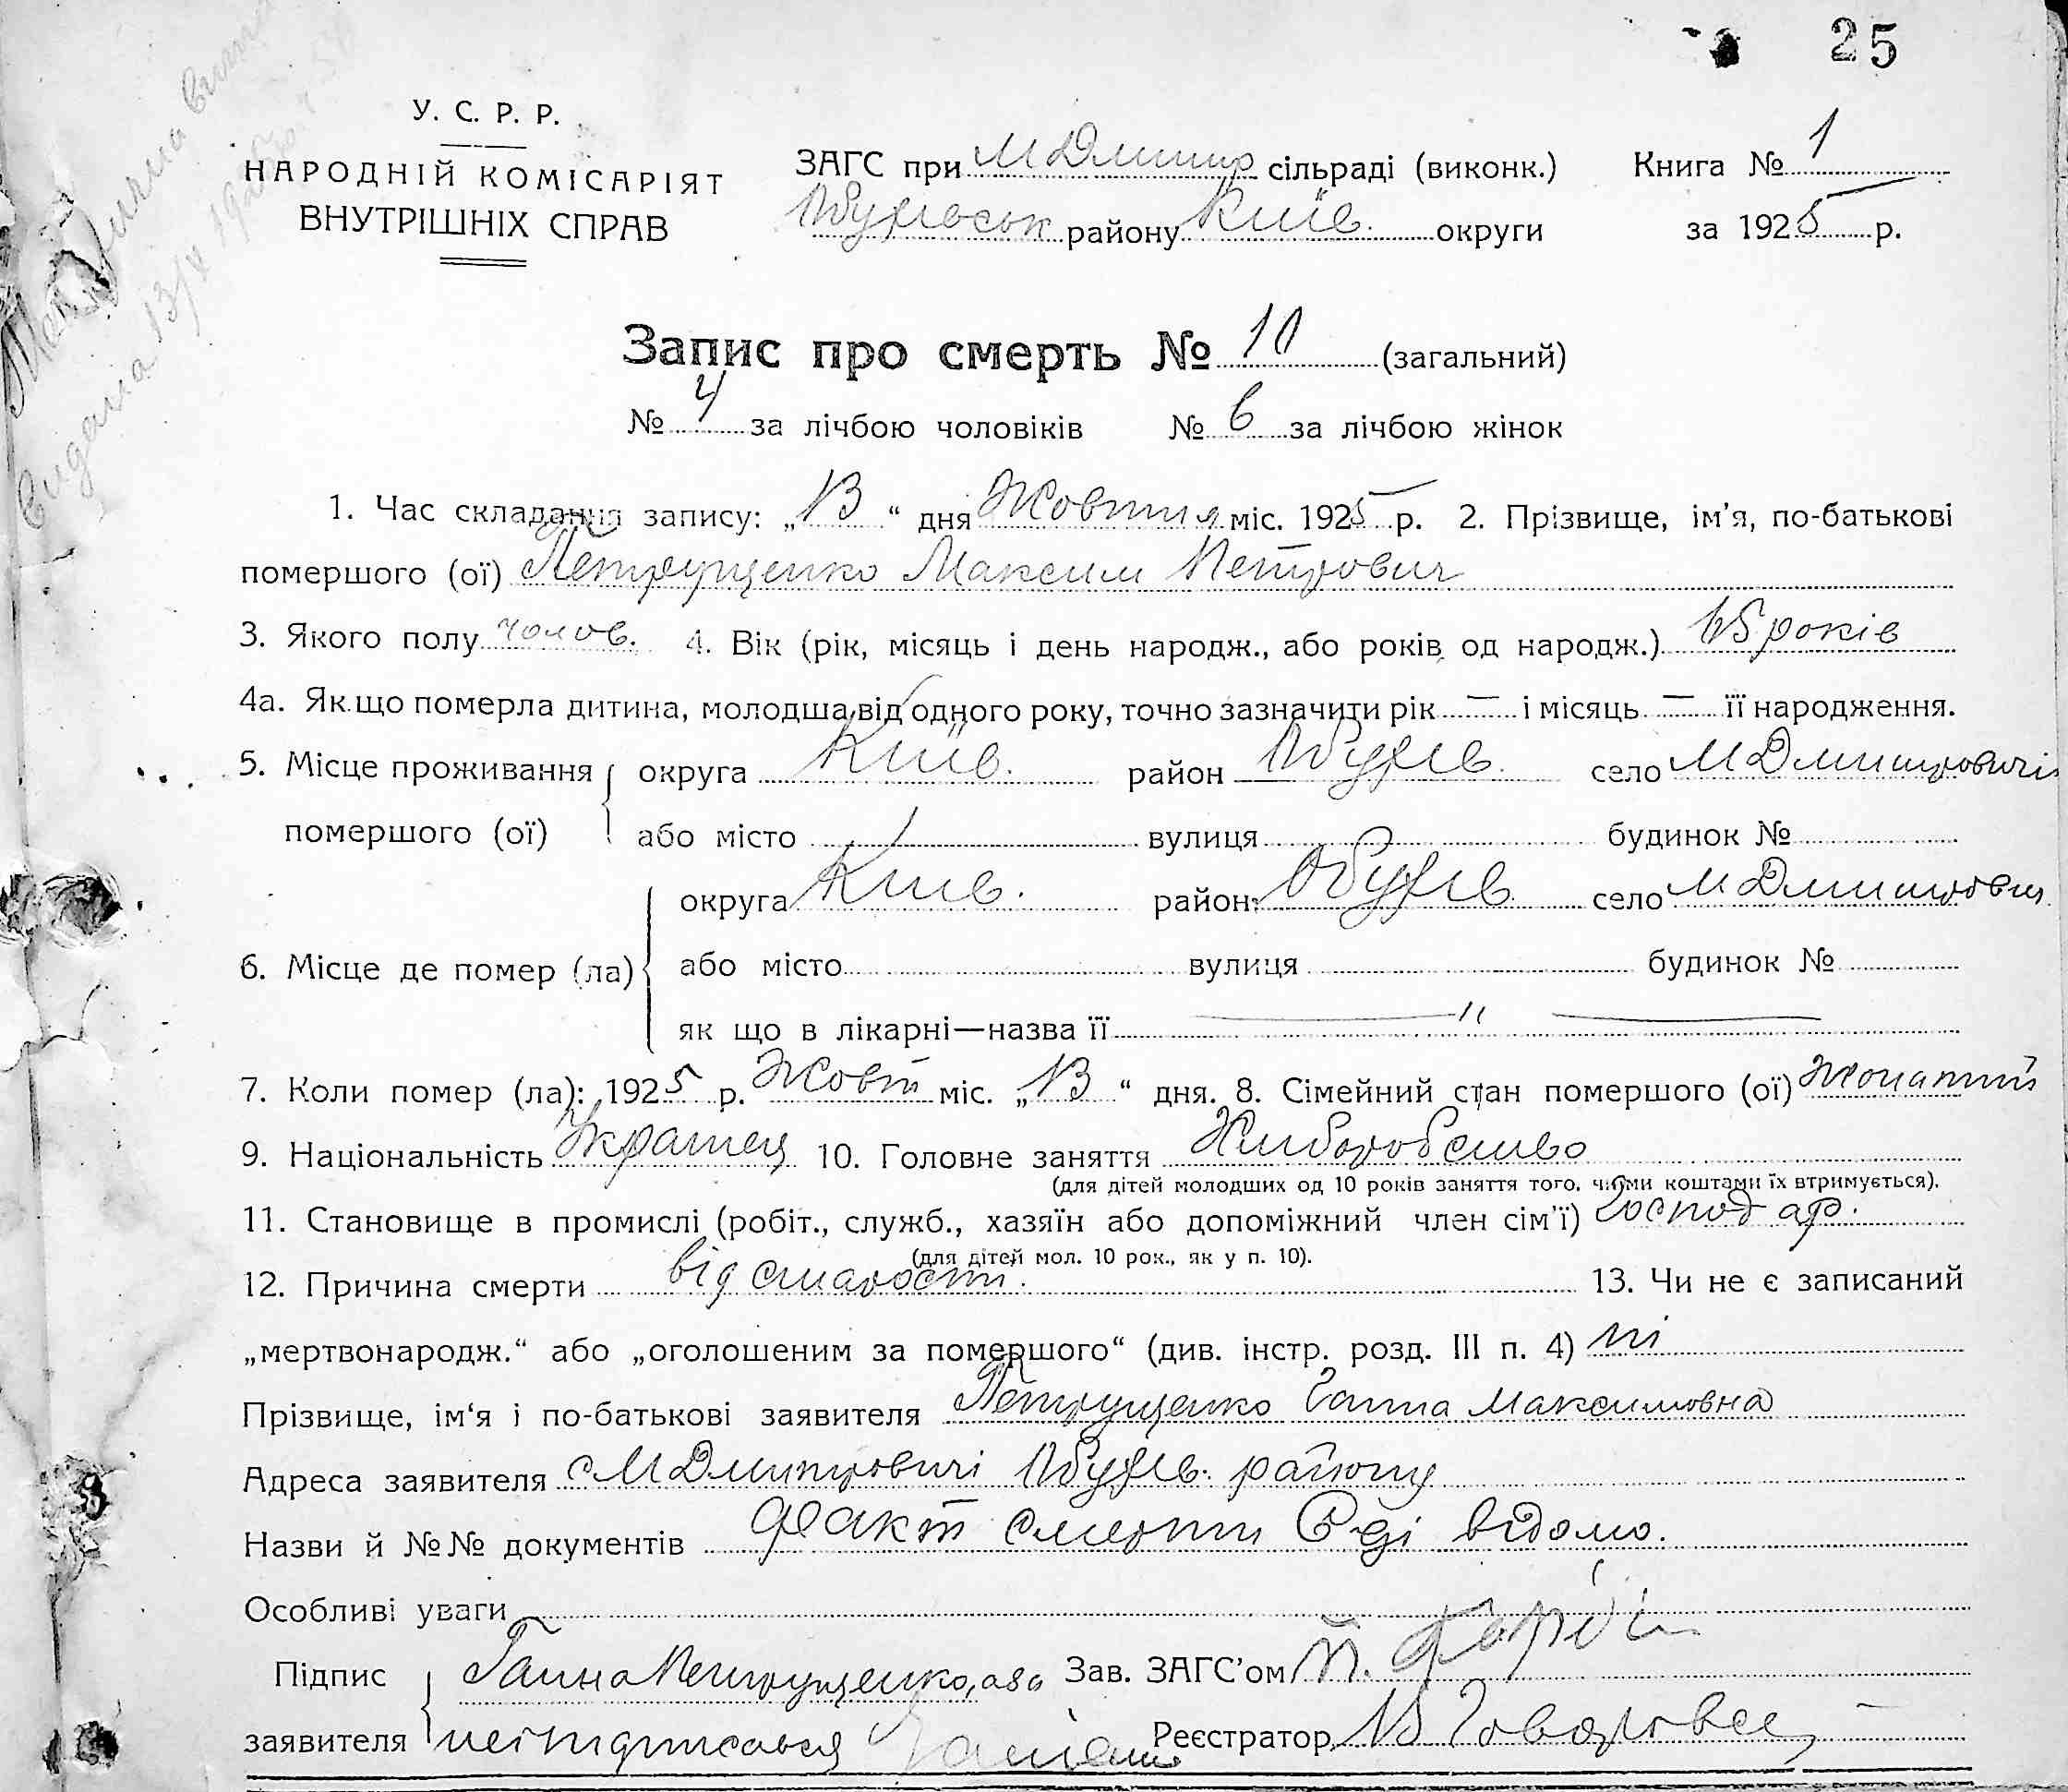 25
У. С. Р. Р.
НАРОДНІЙ КОМІСАРІЯТ
ВНУТРІШНІХ СПРАВ
ЗАГС при М Дмитр сільраді (виконк.) Книга № 1
Обухівськ району Київ. округи за 1925 р.
Запис про смерть № 10 (загальний)
№ 4 за лічбою чоловіків № 6 за лічбою жінок
1. Час складання запису: „13“ дня Жовтня міс. 1925 р. 2. Прізвище, ім'я, по-батькові
помершого (ої) Петрущенко Максим Петрович
3. Якого полу чолов. 4. Вік (рік, місяць і день народж., або років од народж.) 65 років
4а. Як що померла дитина, молодша від одного року, точно зазначити рік — і місяць — її народження.
5. Місце проживання округа Київ. район Обухів. село М Дмитровичі
помершого (ої) або місто вулиця будинок №
округа Київ. район Обухів село М Дмитрович
6. Місце де помер (ла) або місто вулиця будинок №
як що в лікарні—назва її — „ —
7. Коли помер (ла): 1925 р. Жовт міс. „13“ дня. 8. Сімейний стан помершого (ої) Жонатий
9. Національність Украінец 10. Головне заняття Хліборобство
(для дітей молодших од 10 років заняття того, чиїми коштами їх втримується).
11. Становище в промислі (робіт., служб., хазяїн або допоміжний член сім'ї) Господар.
(для дітей мол. 10 рок., як у п. 10).
12. Причина смерти від старости. 13. Чи не є записаний
„мертвонародж.“ або „оголошеним за помершого“ (див. інстр. розд. III п. 4) ні
Прізвище, ім'я і по-батькові заявителя Петрущенко Ганна Максимовна
Адреса заявителя с М Дмитровичі Обухів. району
Назви й №№ документів факт смерти С-ді відомо.
Особливі уваги
Підпис Ганна Петрущенко, а за Зав. ЗАГС'ом
заявителя Реєстратор